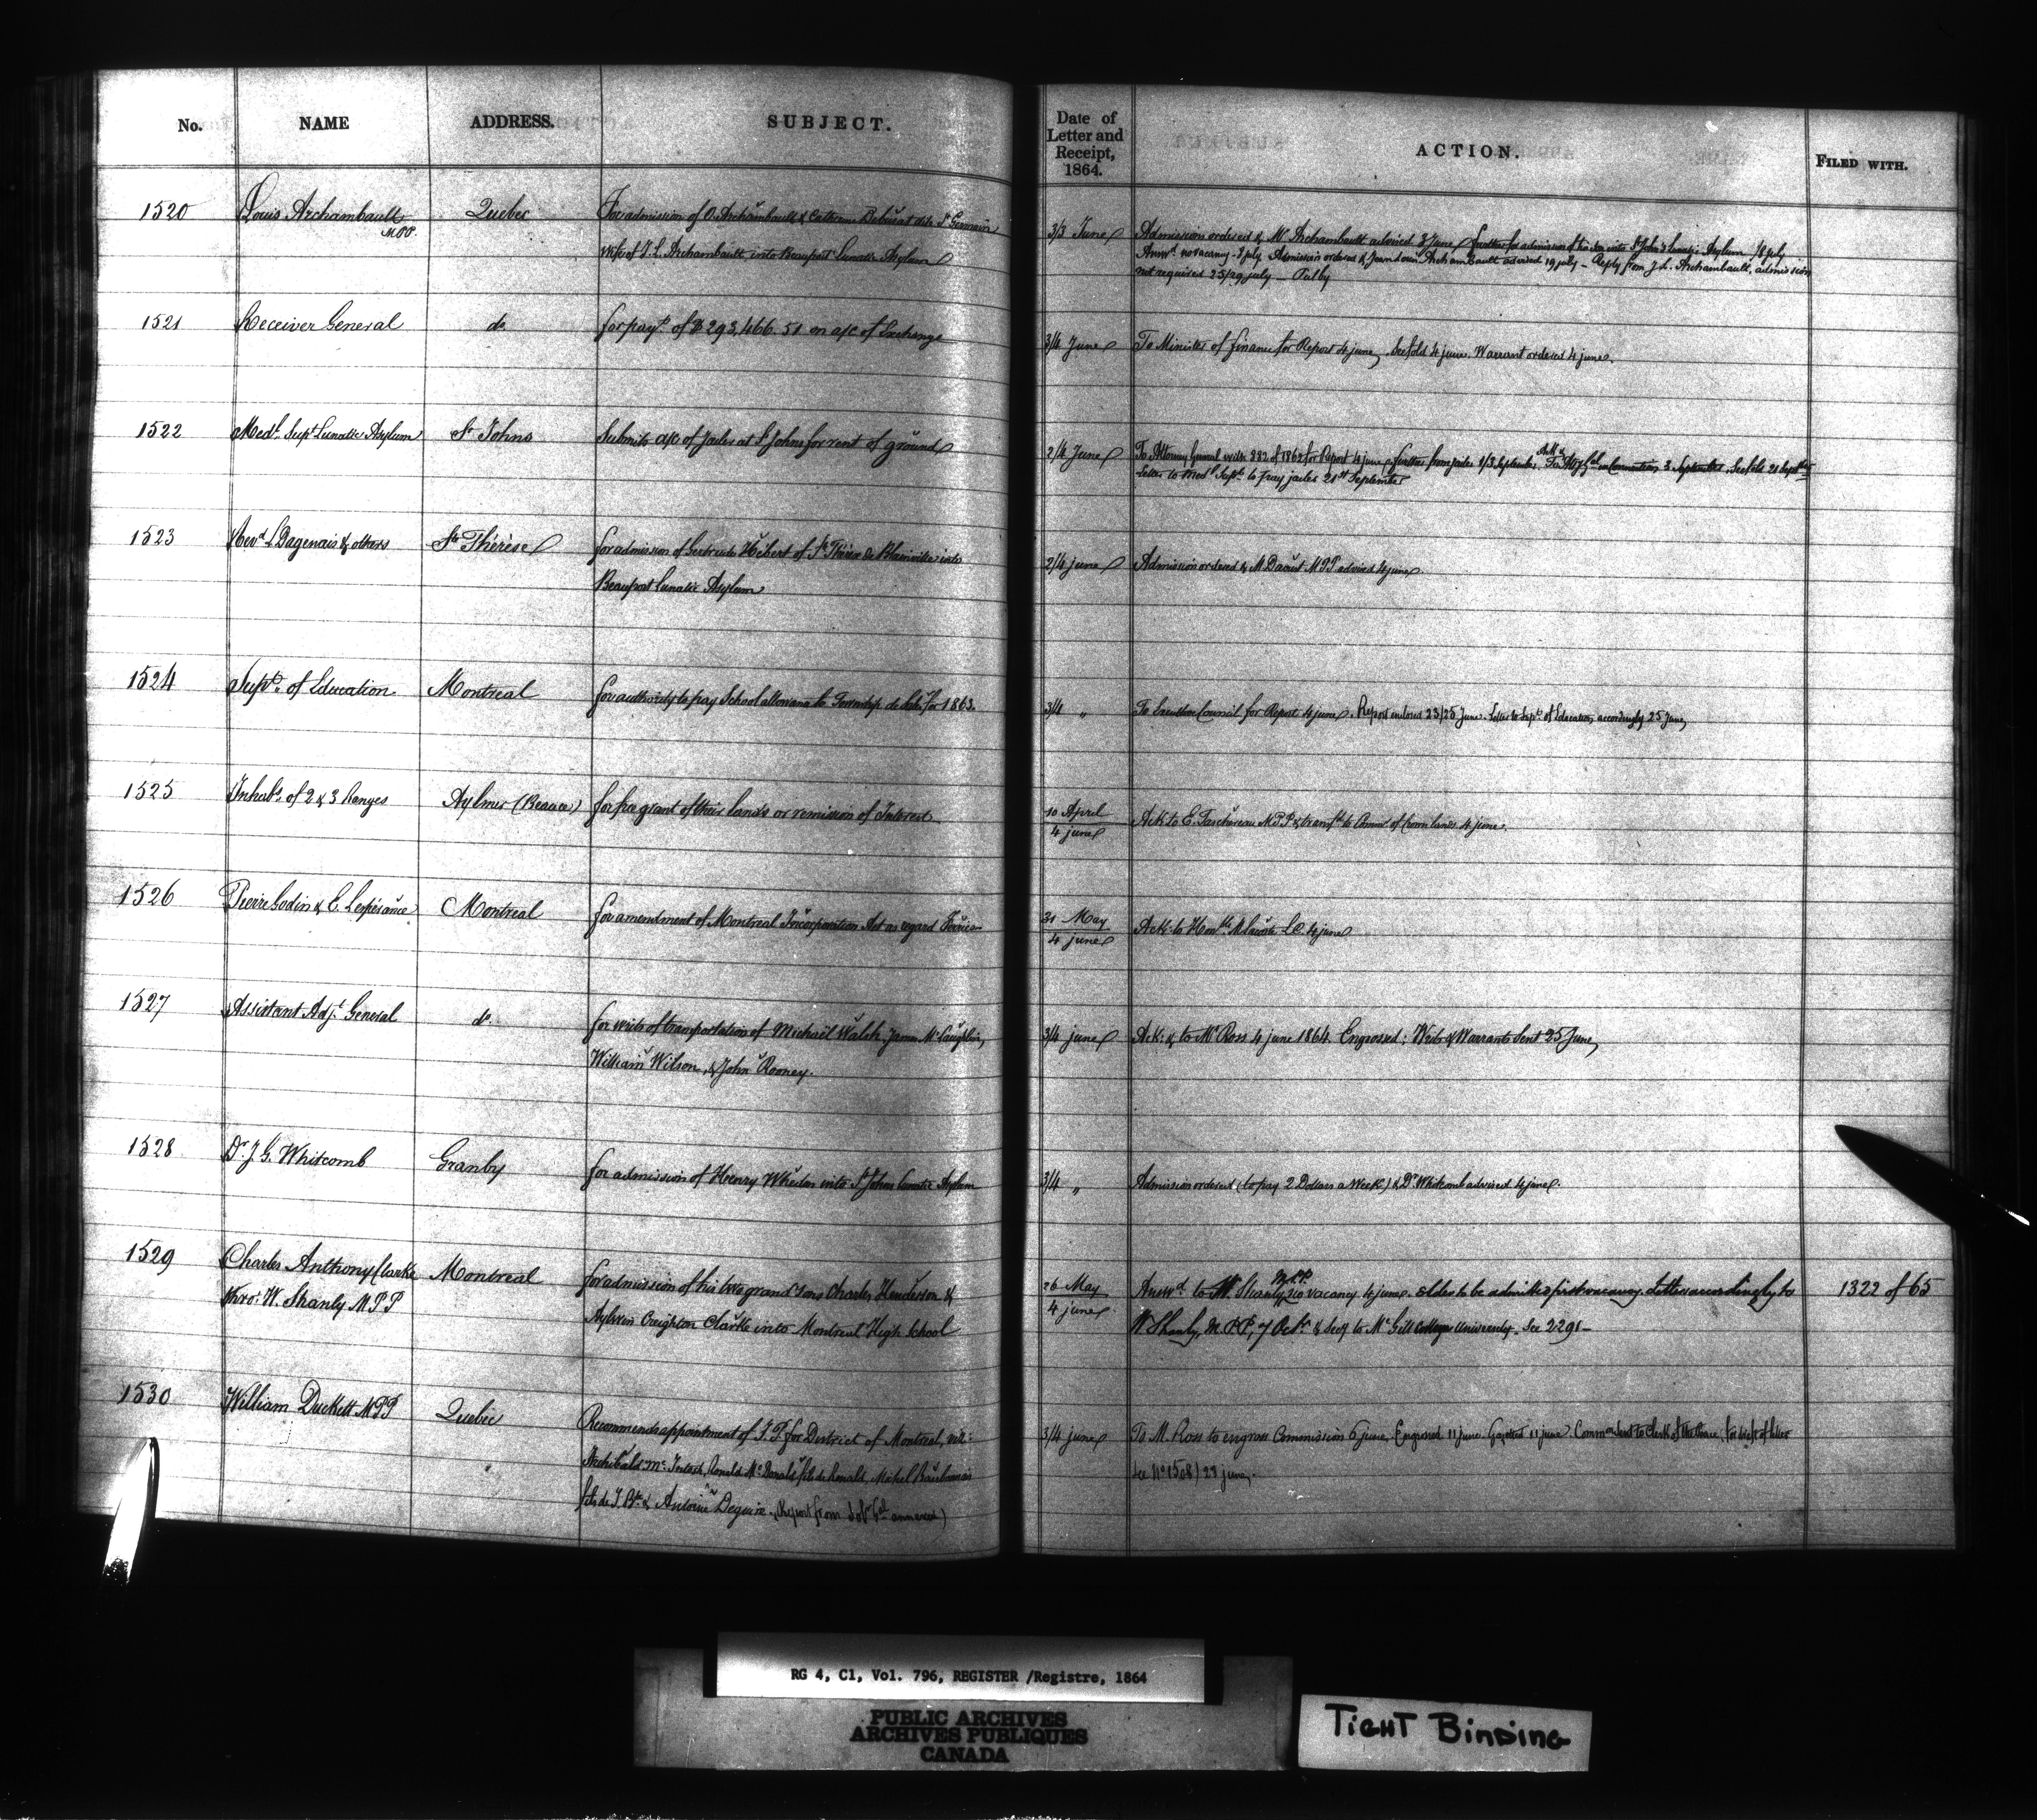 No. NAME ADDRESS. SUBJECT. Date of Letter and Receipt, 1864. ACTION. FILED WITH.
1520 Louis Archambault M.P.P. Quebec For admission of O. Archambault & Catherine dite St Germain
wife of J. L. Archambault into Beauport Lunatic Asylum
3/3 June Admission ordered & Mr. Archambault advised 3 June further for admission of into St John's Lunatic Asylum /8 july
Answd. no vacancy - 8 july Admission ordered & Jean Louis Archambault advised 19 july - Reply from J. L. Archambault, admission
not required 25/29 july - Put by
1521 Receiver General do for payt. of $ 293,466. 51 on a/c of Exchange
3/4 June To Minister of Finance for Report 4 june, 4 june. Warrant ordered 4 june.
1522 Medl. Supt Lunatic Asylum St Johns Submits a/c of Jailer at St Johns for rent of ground
2/4 June To Attorney General with 282 of 1862 for Report 4 june, further from jailer 1/3 September, 3 September. 21 Septber
Letter to Medl Supt. to pay jailer 21st September
1523 Revd L. Dagenais & others Ste Thérèse for admission of Gertrude Hébert of Ste Thérèse de Blainville into
Beauport Lunatic Asylum
2/4 june Admission ordered & M. Daoust MPP advised 4 june.
1524 Supt. of Education Montreal for authority to pay School allowance to Township de for 1863.
3/4 " To Executive Council for Report 4 june. Report 23/25 June. Letter to Supt. of Education accordingly 25 June,
1525 Inhabs of 2 & 3 Ranges Aylmer (Beauce) for free grant of their lands or remission of Interest
10 April
4 june Ack. to E. Taschereau M.P.P. & transfd to Commr. of Crown lands 4 june.
1526 Pierre Godin & C. Lespérance Montreal for amendment of Montreal Incorporation Act as regard
31 May
4 june Ack. to Honble L.C. 4 june
1527 Assistant Adjt. General do. for writs of transportation of Michael Walsh, James McLaughlin,
William Wilson, & John Rooney.
3/4 june Ack: & to Mr Ross 4 june 1864. Engrossed; Writs & Warrants sent 25 June,
1528 Dr. J. G. Whitcomb Granby for admission of Henry into St Johns Lunatic Asylum
3/4 " Admission ordered (to pay 2 Dollars a Week) & Dr. Whitcomb advised 4 june.
1529 Charles Anthony Clarke Montreal for admission of his two grand sons Charles Henderson &
thro: W. Shanly MPP Aylwin Creighton Clarke into Montreal High School
26 May
4 june Answd. to W. Shanly, M.P.P. no vacancy 4 june. elder to be admitted first vacancy. Letter accordingly to
W Shanly, M.P.P., 7 Octr. & Secy to McGill College University. See 2291-
1322 of 65
1530 William Duckett MPP Quebec Recommends appointment of J.P. for District of Montreal, viz:
Archibald McIntosh, Ronald McDonald fils de Ronald, Michel
fils de J. Bte. & Antoine Deguire. (Report from annexed)
3/4 june To M. Ross to engross Commission 6 june, Engrossed 11 june. Gazetted 11 june. Commn sent to Clerk of the Peace
See No 1508) 28 june,
RG 4, C1, Vol. 796, REGISTER /Registre, 1864
PUBLIC ARCHIVES
ARCHIVES PUBLIQUES
CANADA
TIGHT BINDING